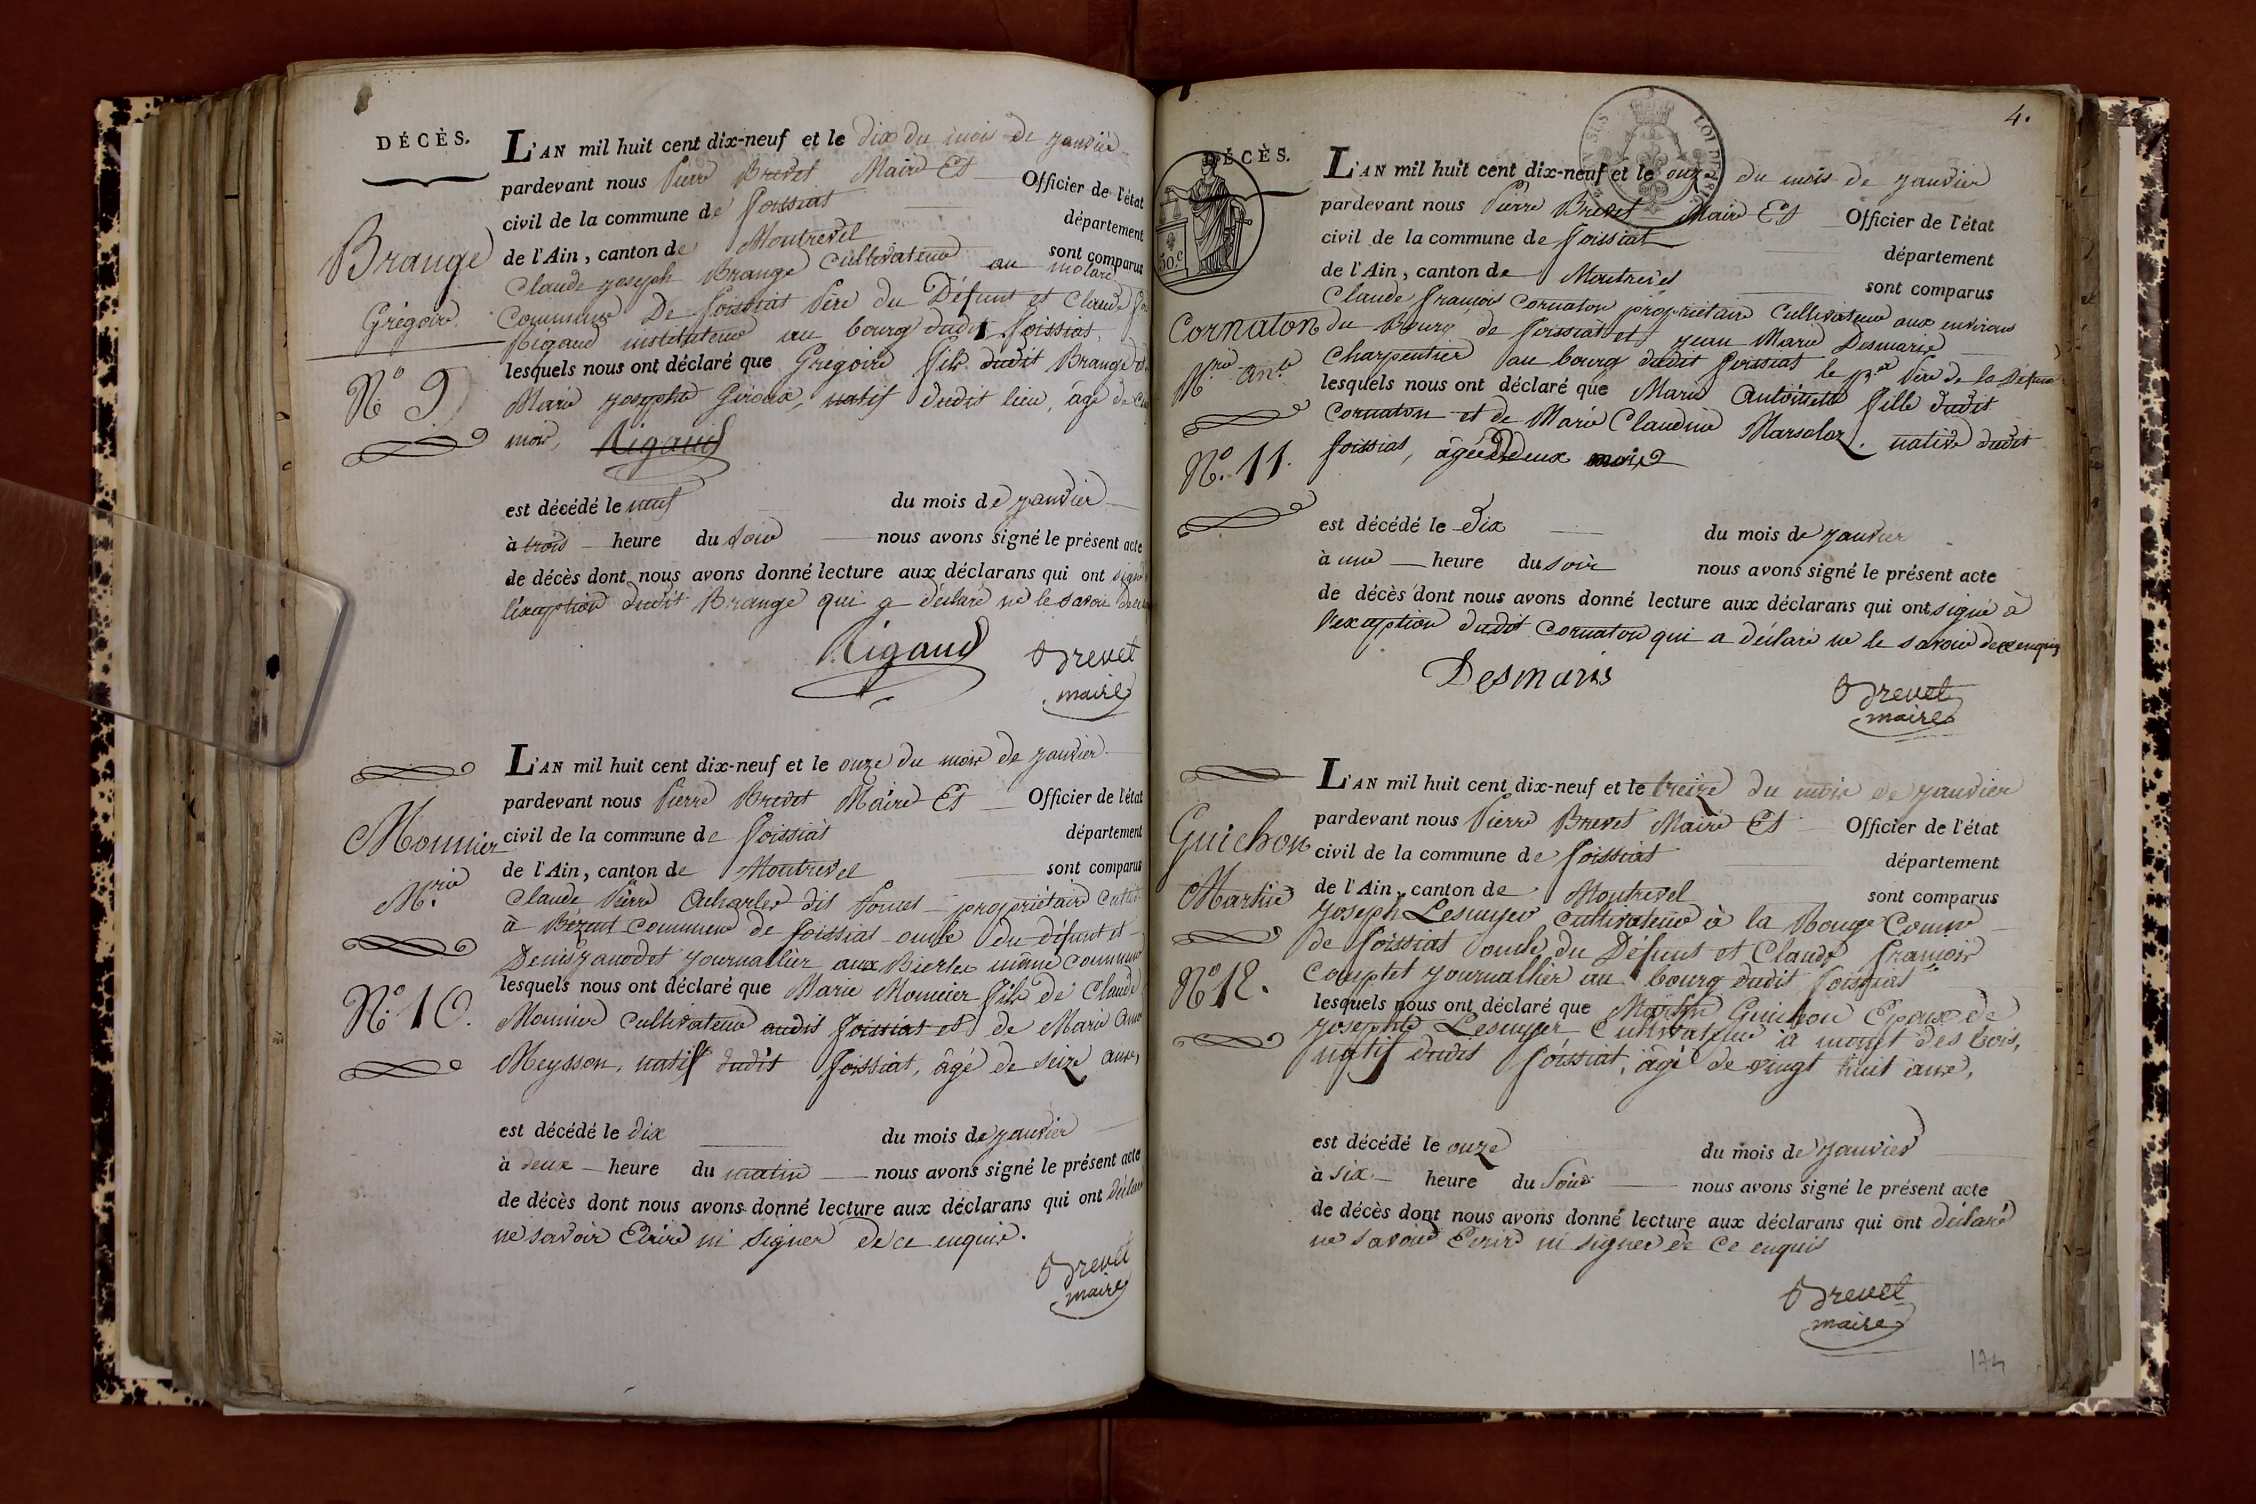 DÉCÈS.
Brange
Grégoire.
N.º 9
L'AN mil huit cent dix-neuf et le dix du mois de janvier
pardevant nous Pierre Brevet Maire Et Officier de l'état
civil de la commune de Foissiat département
de l'Ain, canton de Montrevel sont comparus
Claude joseph Brange Cultivateur au molard
Commune De foissiat Père du Défunt et Claude
Rigaud instituteur au bourg dudit foissiat,
lesquels nous ont déclaré que Grégoire fils dudit Brange et de
Marie josephte Giroux, natif dudit lieu, âgé de
mois, Rigaud
est décédé le neuf du mois de janvier
à trois heure du soir nous avons signé le présent acte
de décès dont nous avons donné lecture aux déclarans qui ont signé
l'exception dudit Brange qui a déclaré ne le savoir
Rigaud Brevet
maire
Monnier
M.rie
N.º 10.
L'AN mil huit cent dix-neuf et le onze du mois de janvier
pardevant nous Pierre Brevet Maire Et Officier de l'état
civil de la commune de foissiat département
de l'Ain, canton de Montrevel sont comparus
Claude Pierre dit propriétaire
à commune de foissiat oncle du défunt et
Denis journallier aux même commune
lesquels nous ont déclaré que Marie Monnier fils de Claude
Monnier cultivateur audit foissiat et de Marie
Meysson, natif dudit foissiat, âgé de seize ans,
est décédé le dix du mois de janvier
à deux heure du matin nous avons signé le présent acte
de décès dont nous avons donné lecture aux déclarans qui ont déclaré
ne savoir Ecrire ni signer de ce enquis.
Brevet
maire
4.
DÉCÈS.
50.c
Cornaton
M.rie An.te
N.º 11.
L'AN mil huit cent dix-neuf et le onze du mois de janvier
pardevant nous Pierre Brevet Maire Et Officier de l'état
civil de la commune de foissiat département
de l'Ain, canton de Montrevel sont comparus
Claude françois Cornaton propriétaire Cultivateur aux environs
du Bourg de foissiat et jean Marie Desmaris
Charpentier au bourg dudit foissiat le p.er Père de la Défunte
lesquels nous ont déclaré que Marie Antoinette fille dudit
Cornaton et de Marie Claudine native dudit
foissiat, âgée De deux mois
est décédé le Dix du mois de janvier
à une heure du soir nous avons signé le présent acte
de décès dont nous avons donné lecture aux déclarans qui ont signé à
l'exception dudit Cornaton qui a déclaré ne le savoir de ce enquis
Desmaris Brevet
maire
Guichon
Martin
N.º 12.
L'AN mil huit cent dix-neuf et le treize du mois de janvier
pardevant nous Pierre Brevet Maire Et Officier de l'état
civil de la commune de foissiat département
de l'Ain, canton de Montrevel sont comparus
Joseph Lescuyer cultivateur à la Rouge Comne
de foissiat oncle du Défunt et Claude françois
journallier au bourg dudit foissiat
lesquels nous ont déclaré que Martin Guichon Epoux de
Josephte Lescuyer Cultivateur à mont des bois,
natif dudit foissiat, âgé de vingt huit ans,
est décédé le onze du mois de janvier
à six heure du soir nous avons signé le présent acte
de décès dont nous avons donné lecture aux déclarans qui ont déclaré
ne savoir Ecrire ni signer de ce enquis
Brevet
maire
174